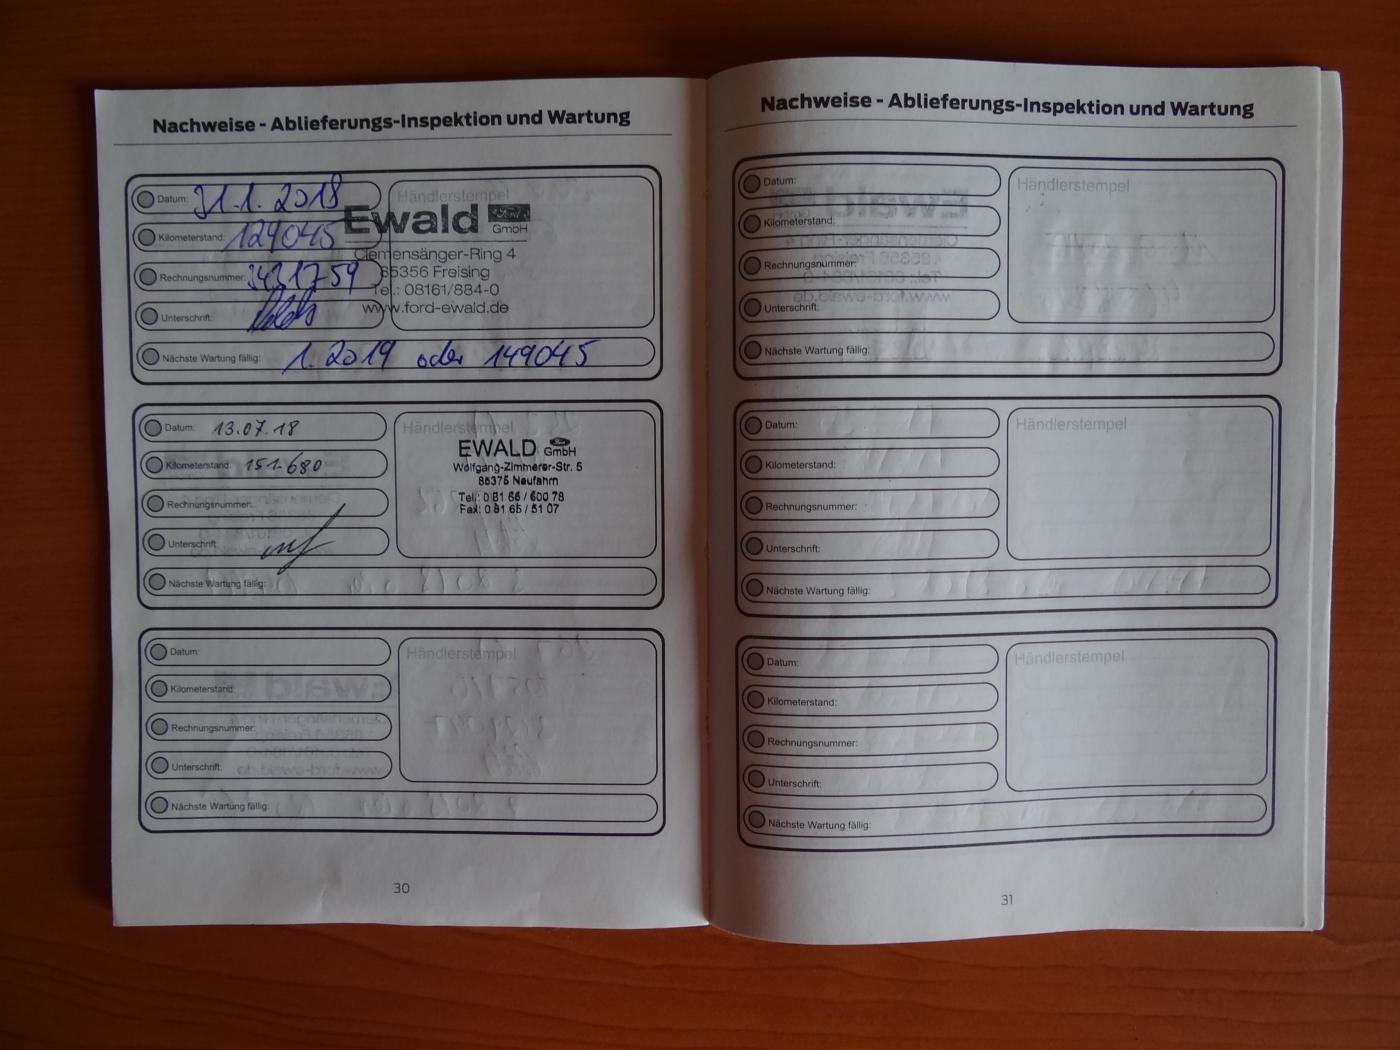 Nachweise - Ablieferungs-Inspektion und Wartung
Datum: 31.1.2018
Kilometerstand: 129045
Rechnungsnummer:
Unterschrift:
Händlerstempel
Ewald Ford GmbH
Clemensänger-Ring 4
85356 Freising
Tel.: 08161/884-0
www.ford-ewald.de
Nächste Wartung fällig: 1.2019 oder 149045
Datum: 13.07.18
Kilometerstand: 151.680
Rechnungsnummer:
Unterschrift:
Händlerstempel
EWALD Ford GmbH
Wolfgang-Zimmerer-Str. 5
85375 Neufahrn
Tel.: 0 81 65 / 600 78
Fax: 0 81 65 / 51 07
Nächste Wartung fällig:
Datum:
Kilometerstand:
Rechnungsnummer:
Unterschrift:
Händlerstempel
Nächste Wartung fällig:
30
Nachweise - Ablieferungs-Inspektion und Wartung
Datum:
Kilometerstand:
Rechnungsnummer:
Unterschrift:
Händlerstempel
Nächste Wartung fällig:
Datum:
Kilometerstand:
Rechnungsnummer:
Unterschrift:
Händlerstempel
Nächste Wartung fällig:
Datum:
Kilometerstand:
Rechnungsnummer:
Unterschrift:
Händlerstempel
Nächste Wartung fällig:
31